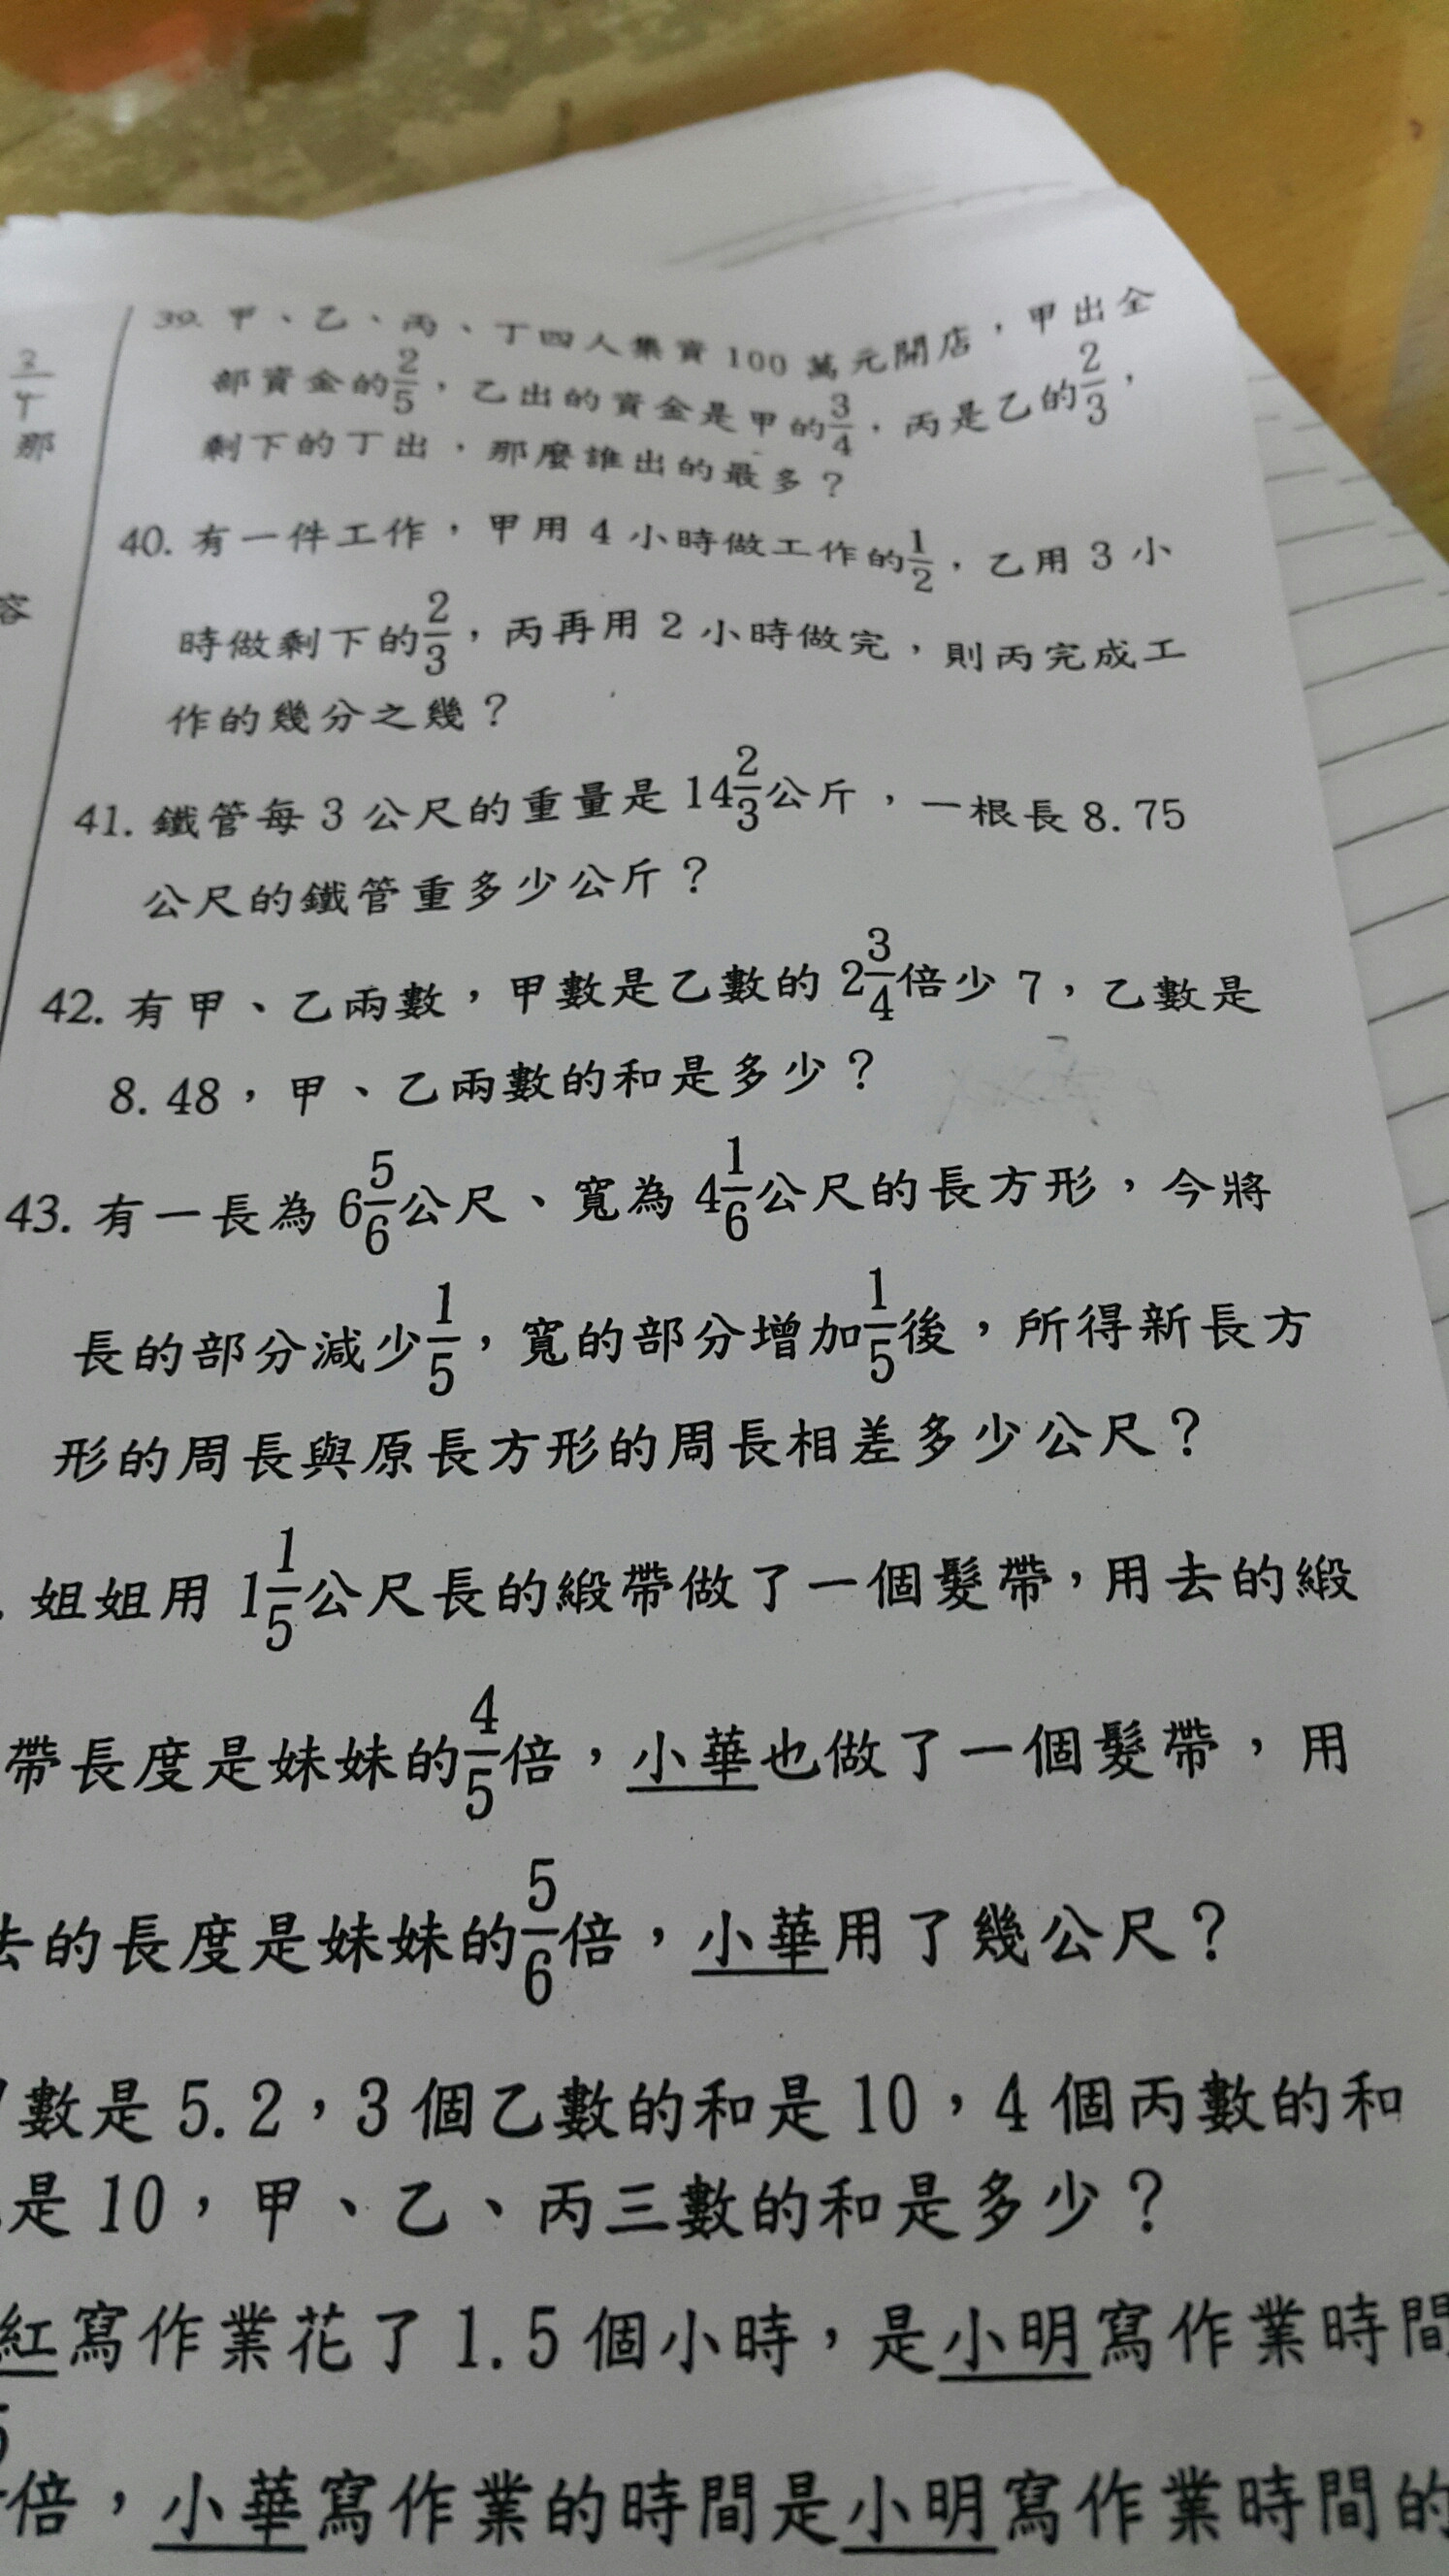 39. 甲、乙、丙、丁四人集資100萬元開店，甲出全
部資金的2/5，乙出的資金是甲的3/4，丙是乙的2/3，
剩下的丁出，那麼誰出的最多？
40. 有一件工作，甲用4小時做工作的1/2，乙用3小
時做剩下的2/3，丙再用2小時做完，則丙完成工
作的幾分之幾？
41. 鐵管每3公尺的重量是14 2/3公斤，一根長8.75
公尺的鐵管重多少公斤？
42. 有甲、乙兩數，甲數是乙數的2 3/4倍少7，乙數是
8.48，甲、乙兩數的和是多少？
43. 有一長為6 5/6公尺、寬為4 1/6公尺的長方形，今將
長的部分減少1/5，寬的部分增加1/5後，所得新長方
形的周長與原長方形的周長相差多少公尺？
姐姐用1 1/5公尺長的緞帶做了一個髮帶，用去的緞
帶長度是妹妹的4/5倍，小華也做了一個髮帶，用
去的長度是妹妹的5/6倍，小華用了幾公尺？
數是5.2，3個乙數的和是10，4個丙數的和
是10，甲、乙、丙三數的和是多少？
紅寫作業花了1.5個小時，是小明寫作業時間
倍，小華寫作業的時間是小明寫作業時間的
那
容